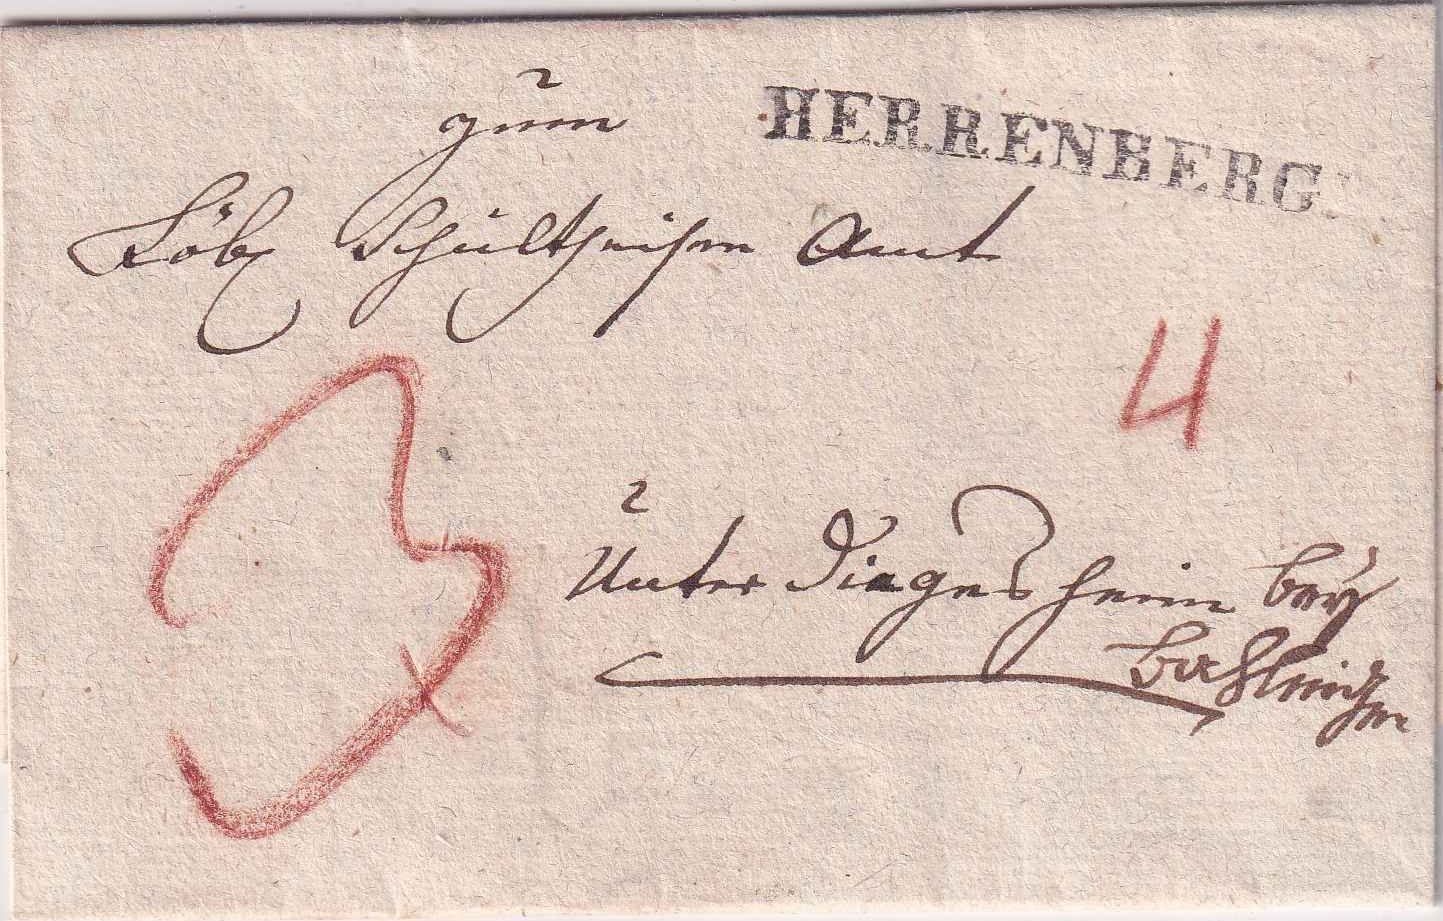 zum
HERRENBERG.
Löbl Schultheisen Amt
4
Unter Diegesheim bey
Bahlingen
3